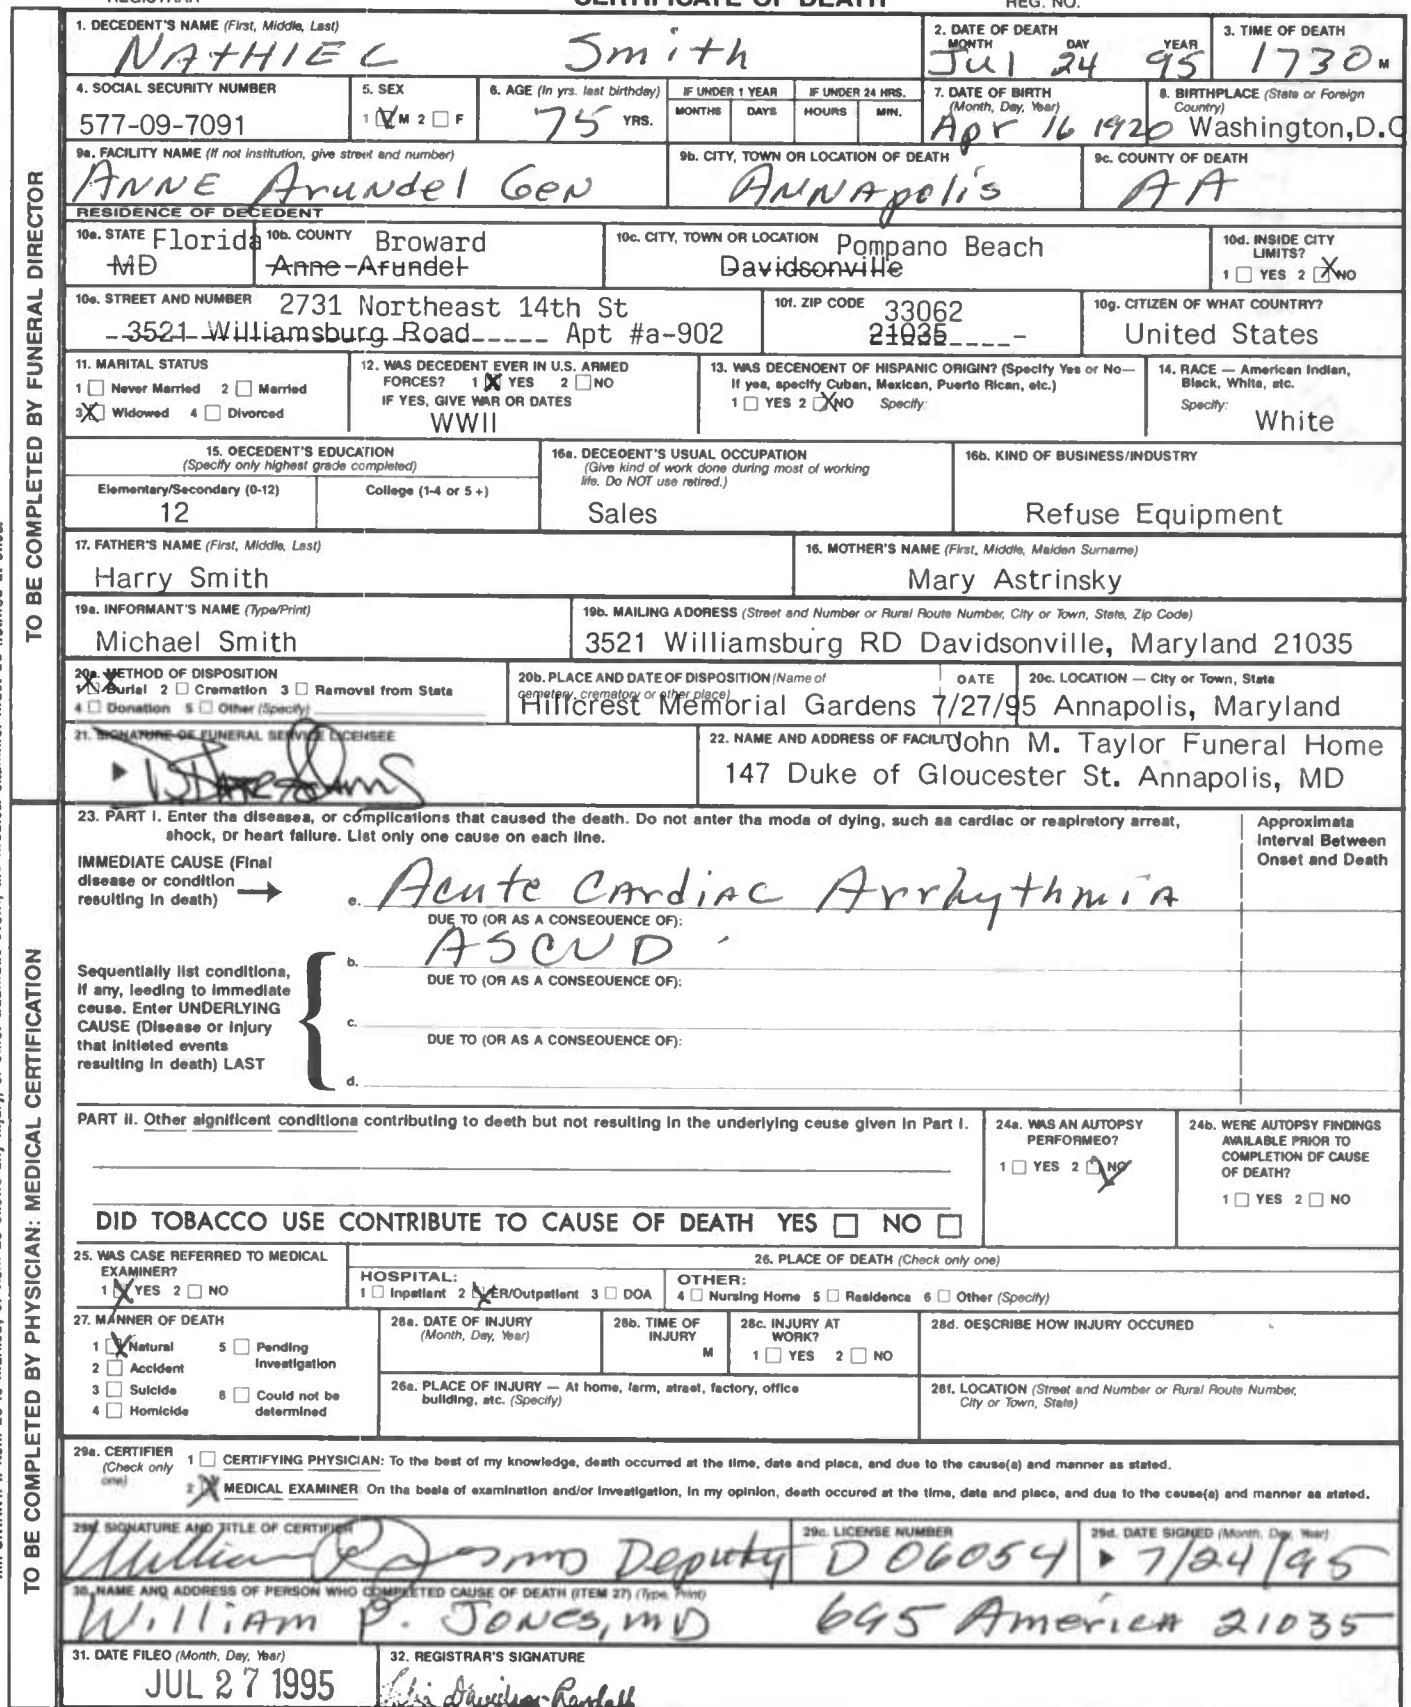 CERTIFICATE OF DEATH
REGISTRAR REG. NO.
TO BE COMPLETED BY FUNERAL DIRECTOR
1. DECEDENT'S NAME (First, Middle, Last)
NATHIEL Smith
2. DATE OF DEATH
MONTH DAY YEAR
Jul 24 95
3. TIME OF DEATH
1730 M
4. SOCIAL SECURITY NUMBER
577-09-7091
5. SEX
1 M 2 F
6. AGE (In yrs. last birthday)
75 YRS.
IF UNDER 1 YEAR
MONTHS DAYS
IF UNDER 24 HRS.
HOURS MIN.
7. DATE OF BIRTH
(Month, Day, Year)
Apr 16 1920
8. BIRTHPLACE (State or Foreign
Country)
Washington,D.C
9a. FACILITY NAME (If not institution, give street and number)
ANNE Arundel Gen
9b. CITY, TOWN OR LOCATION OF DEATH
ANNApolis
9c. COUNTY OF DEATH
AA
RESIDENCE OF DECEDENT
10a. STATE Florida
MD
10b. COUNTY Broward
Anne Arundel
10c. CITY, TOWN OR LOCATION Pompano Beach
Davidsonville
10d. INSIDE CITY
LIMITS?
1 YES 2 NO
10e. STREET AND NUMBER 2731 Northeast 14th St
3521 Williamsburg Road Apt #a-902
10f. ZIP CODE 33062
21035
10g. CITIZEN OF WHAT COUNTRY?
United States
11. MARITAL STATUS
1 Never Married 2 Married
3 Widowed 4 Divorced
12. WAS DECEDENT EVER IN U.S. ARMED
FORCES? 1 YES 2 NO
IF YES, GIVE WAR OR DATES
WWII
13. WAS DECENOENT OF HISPANIC ORIGIN? (Specify Yes or No—
If yes, specify Cuban, Mexican, Puerto Rican, etc.)
1 YES 2 NO Specify:
14. RACE — American Indian,
Black, White, etc.
Specify:
White
15. OECEDENT'S EDUCATION
(Specify only highest grade completed)
Elementary/Secondary (0-12)
12
College (1-4 or 5+)
16a. DECEOENT'S USUAL OCCUPATION
(Give kind of work done during most of working
life. Do NOT use retired.)
Sales
16b. KIND OF BUSINESS/INDUSTRY
Refuse Equipment
17. FATHER'S NAME (First, Middle, Last)
Harry Smith
16. MOTHER'S NAME (First, Middle, Maiden Surname)
Mary Astrinsky
19a. INFORMANT'S NAME (Type/Print)
Michael Smith
19b. MAILING ADORESS (Street and Number or Rural Route Number, City or Town, State, Zip Code)
3521 Williamsburg RD Davidsonville, Maryland 21035
20a. METHOD OF DISPOSITION
1 Burial 2 Cremation 3 Removal from Stata
4 Donation 5 Other (Specify)
20b. PLACE AND DATE OF DISPOSITION (Name of
cemetery, crematory or other place)
OATE
20c. LOCATION — City or Town, Stata
Hillcrest Memorial Gardens 7/27/95 Annapolis, Maryland
21. SIGNATURE OF FUNERAL SERVICE LICENSEE
22. NAME AND ADDRESS OF FACILITY John M. Taylor Funeral Home
147 Duke of Gloucester St. Annapolis, MD
TO BE COMPLETED BY PHYSICIAN: MEDICAL CERTIFICATION
23. PART I. Enter tha diseasea, or complications that caused the death. Do not anter tha moda of dying, such aa cardiac or reapiratory arreat,
shock, or heart failure. Liat only one cause on each line.
Approximata
Interval Between
Onset and Death
IMMEDIATE CAUSE (Final
disease or condition
resulting in death)
e. Acute CArdiAC ArrhythmiA
DUE TO (OR AS A CONSEOUENCE OF):
b. ASCVD
DUE TO (OR AS A CONSEOUENCE OF):
Sequentially list conditiona,
if any, leeding to immediate
ceuse. Enter UNDERLYING
CAUSE (Disease or Injury
that initieted events
resulting in death) LAST
c.
DUE TO (OR AS A CONSEOUENCE OF):
d.
PART II. Other aignificent conditiona contributing to deeth but not resulting in the underlying ceuse given in Part I.
24a. WAS AN AUTOPSY
PERFORMEO?
1 YES 2 NO
24b. WERE AUTOPSY FINDINGS
AVAILABLE PRIOR TO
COMPLETION OF CAUSE
OF DEATH?
1 YES 2 NO
DID TOBACCO USE CONTRIBUTE TO CAUSE OF DEATH YES NO
25. WAS CASE REFERRED TO MEDICAL
EXAMINER?
1 YES 2 NO
26. PLACE OF DEATH (Check only one)
HOSPITAL:
1 Inpatiant 2 ER/Outpatient 3 DOA
OTHER:
4 Nursing Home 5 Rasidenca 6 Other (Specify)
27. MANNER OF DEATH
1 Natural 5 Pending
Investigation
2 Accident
3 Suicide 8 Could not be
determined
4 Homicide
28a. DATE OF INJURY
(Month, Day, Year)
28b. TIME OF
INJURY
M
28c. INJURY AT
WORK?
1 YES 2 NO
28d. OESCRIBE HOW INJURY OCCURED
26a. PLACE OF INJURY — At home, farm, atraat, factory, office
building, atc. (Specify)
281. LOCATION (Street and Number or Rural Route Number,
City or Town, State)
29a. CERTIFIER
(Check only
one)
1 CERTIFYING PHYSICIAN: To the best of my knowledge, death occurred at the time, date and placa, and due to the cause(a) and manner as stated.
2 MEDICAL EXAMINER On tha beala of examination and/or Invealigation, in my opinion, death occured at the time, data and place, and due to the ceuse(e) and manner aa atated.
29b. SIGNATURE AND TITLE OF CERTIFIER
William P Jones MD Deputy
29c. LICENSE NUMBER
D 06054
29d. DATE SIGNED (Month, Day, Year)
7/24/95
30. NAME ANQ ADDRESS OF PERSON WHO COMPLETED CAUSE OF DEATH (ITEM 27) (Type, Print)
WilliAM P. JONES, MD 695 AmericA 21035
31. DATE FILEO (Month, Day, Year)
JUL 27 1995
32. REGISTRAR'S SIGNATURE
Davidson-Randall